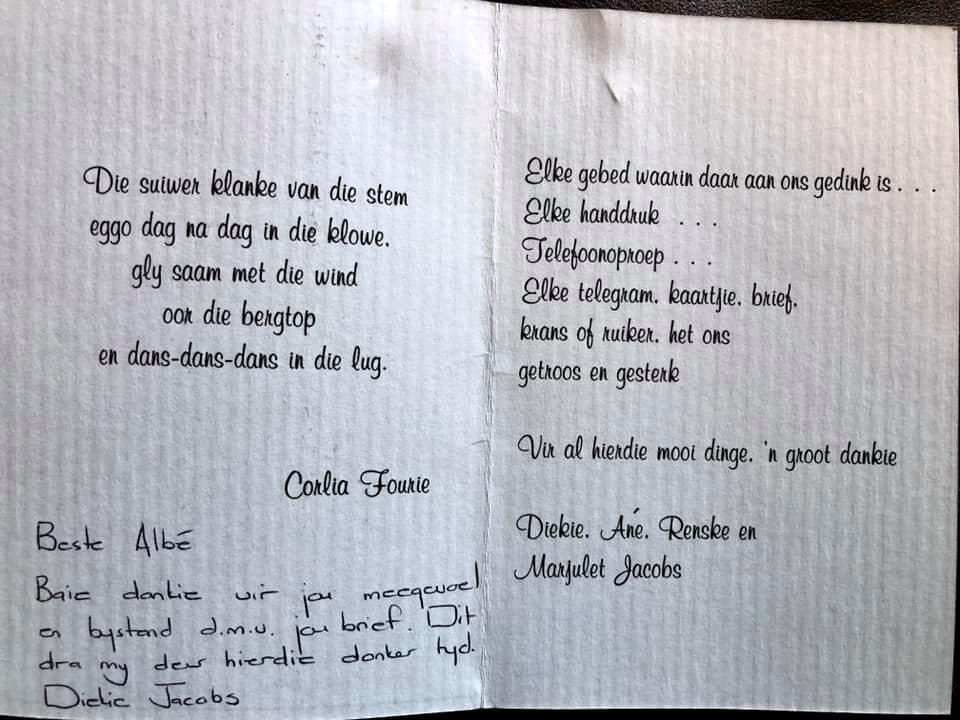 Die suiwer klanke van die stem
eggo dag na dag in die klowe,
gly saam met die wind
oor die bergtop
en dans-dans-dans in die lug.
Corlia Fourie
Beste Albé
Baie dankie vir jou meegevoel
en bystand d.m.v. jou brief. Dit
dra my deur hierdie donker tyd.
Diekie Jacobs
Elke gebed waarin daar aan ons gedink is . . .
Elke handdruk . . .
Telefoonoproep . . .
Elke telegram, kaartjie, brief,
krans of ruiker, het ons
getroos en gesterk
Vir al hierdie mooi dinge, 'n groot dankie
Diekie, Ané, Renske en
Marjulet Jacobs